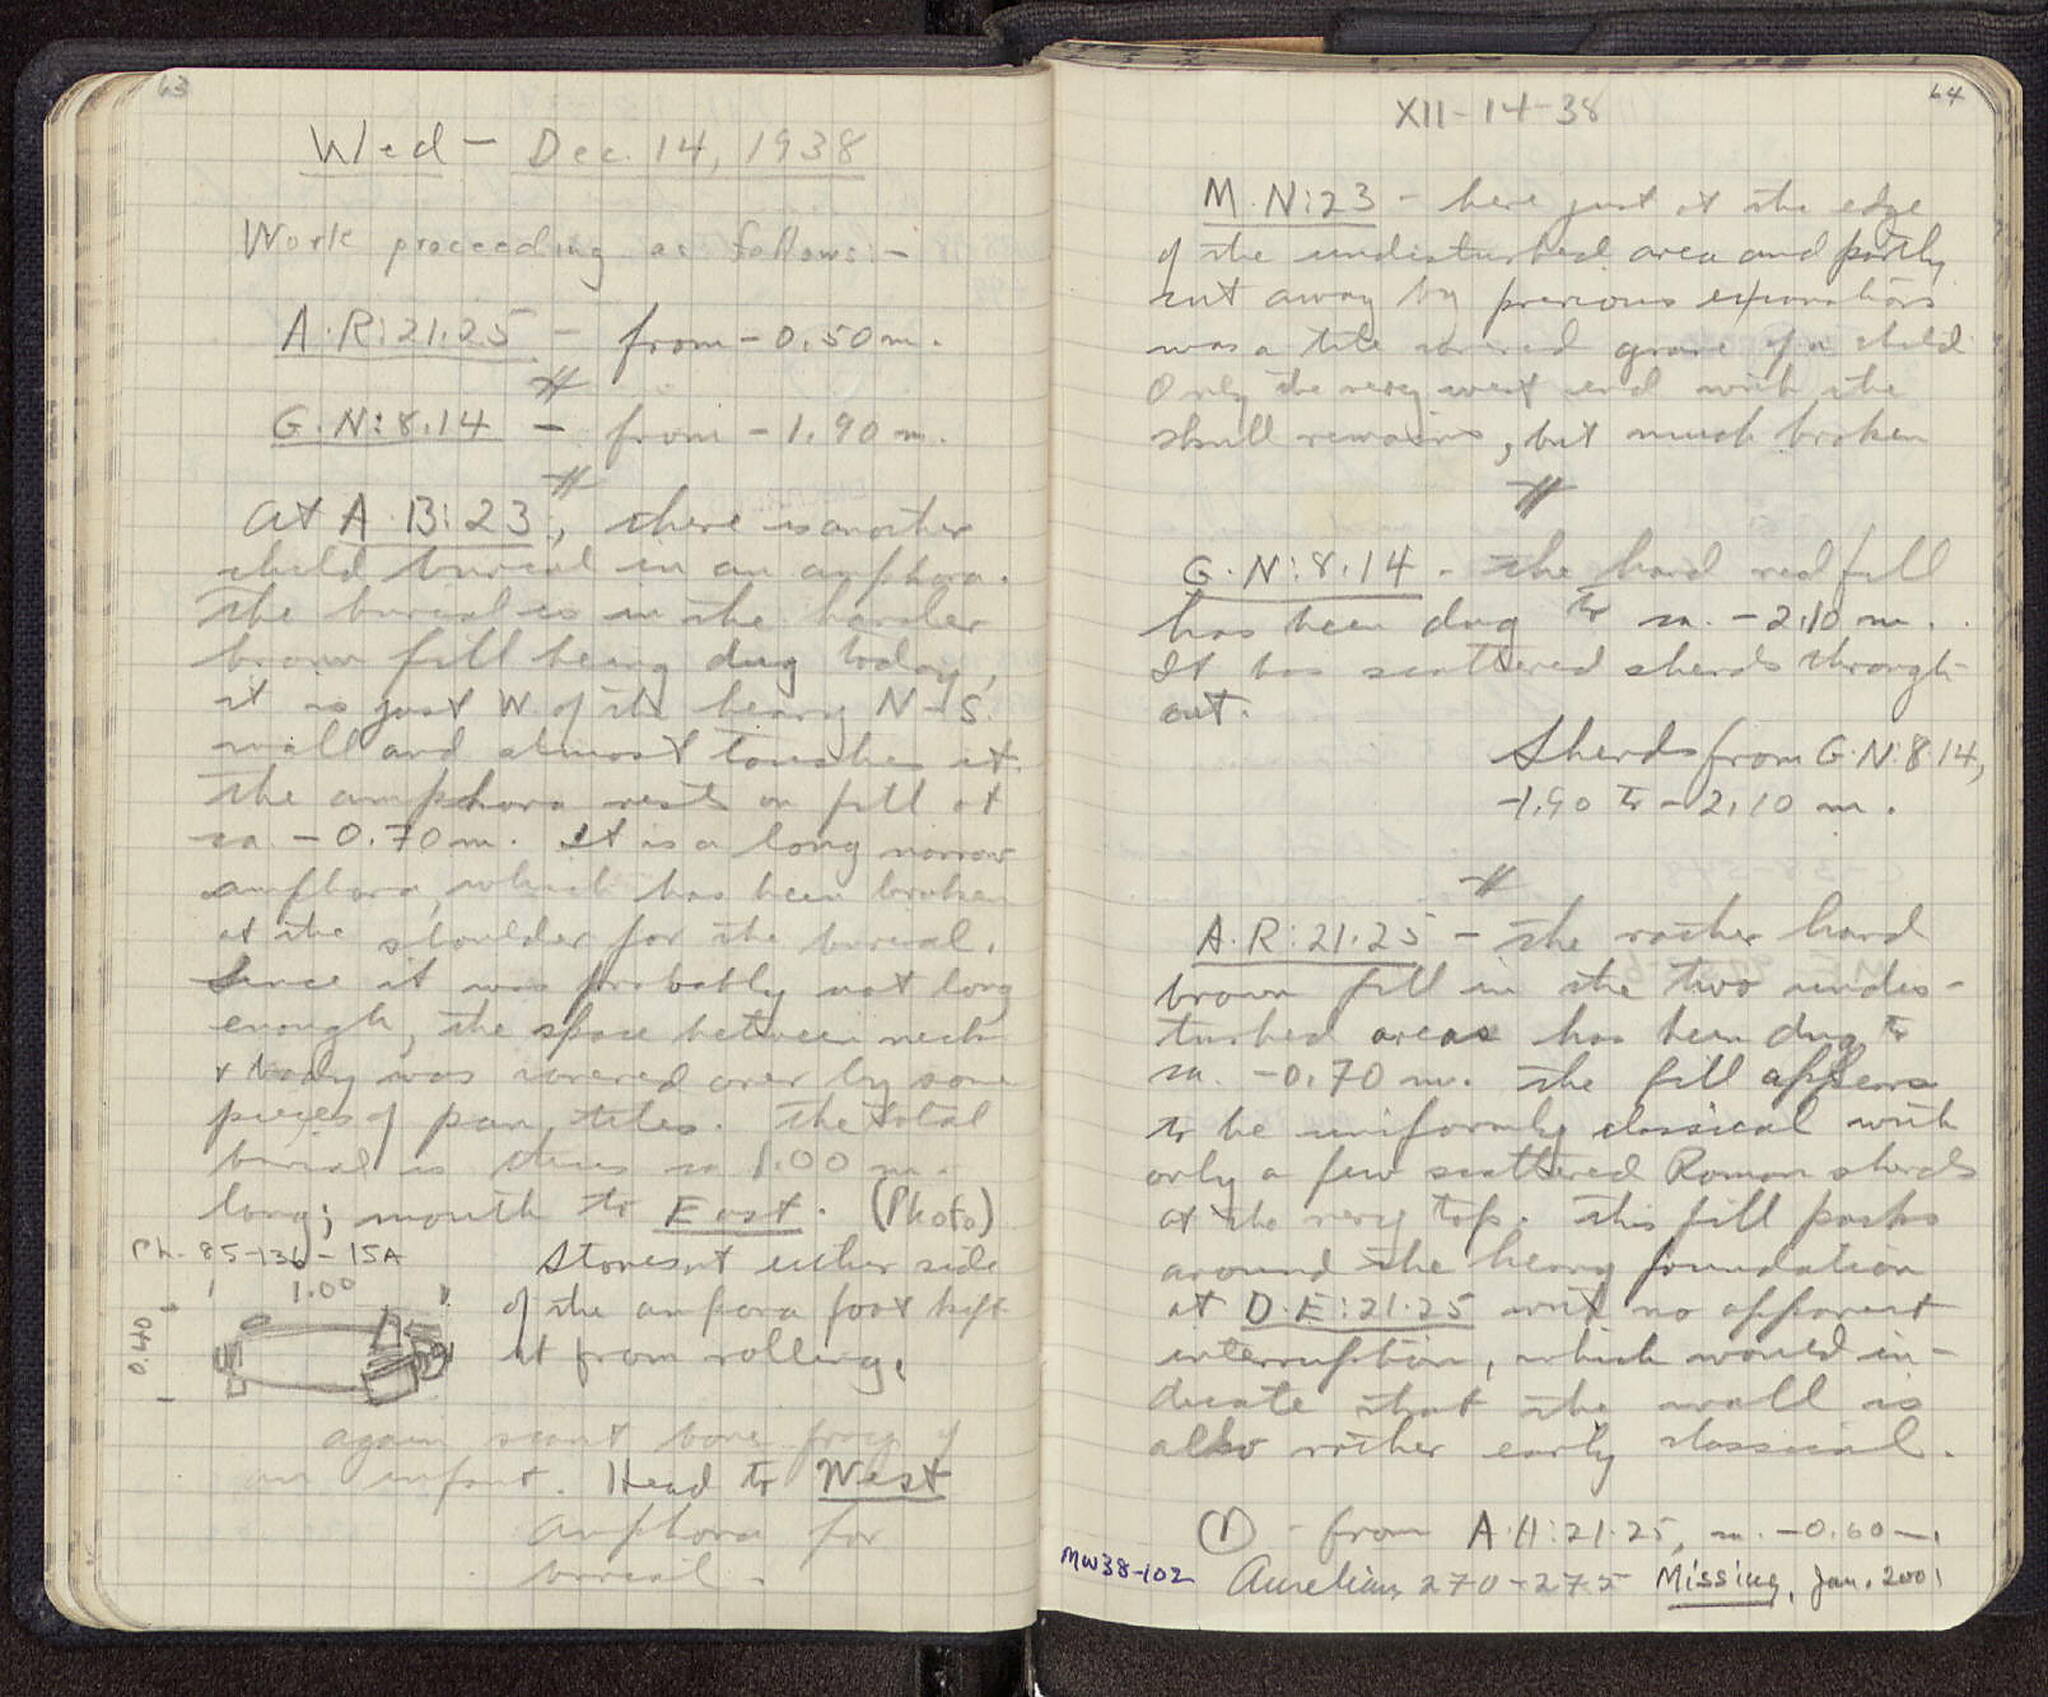 63
Wed - Dec. 14, 1938
Work proceeding as follows:-
A·R:21.25 - from -0.50 m.
G·N:8.14 - from -1.90 m.
At A·B:23, there is another
child burial in an amphora.
The burial is in the harder
brown fill being dug today,
it is just W. of the heavy N-S
wall and almost touches it.
The amphora rests on fill at
ca. -0.70 m. It is a long narrow
amphora, which has been broken
at the shoulder for the burial.
Since it was probably not long
enough, the space between neck
& body was covered over by some
pieces of pan tiles. The total
burial is thus ca 1.00 m.
long; mouth to East. (Photo)
Ph. 85-136-15A
Stones at either side
1.00
of the anpora foot kept
0.40
it from rolling.
again scant bone frag of
an infant. Head to West
Amphora for
burial.
64
XII-14-38
M·N:23 - here just at the edge
of the undisturbed area and partly
cut away by previous excavations
was a tile covered grave of a child
Only the very west end with the
skull remains, but much broken
G·N:8.14 - The hard red fill
has been dug to ca. -2.10 m.
It has scattered sherds through-
out.
Sherds from G·N:8.14,
-1.90 to -2.10 m.
A·R:21.25 - The rather hard
brown fill in the two undis-
turbed areas has been dug to
ca. -0.70 m. The fill appears
to be uniformly classical with
only a few scattered Roman sherds
at the very top. This fill packs
around the heavy foundation
at D·E:21.25 with no apparent
interruption, which would in-
dicate that the wall is
also rather early classical.
① - from A·H:21.25, ca. -0.60 m.
MW38-102
Aurelian 270-275 Missing, Jan. 2001